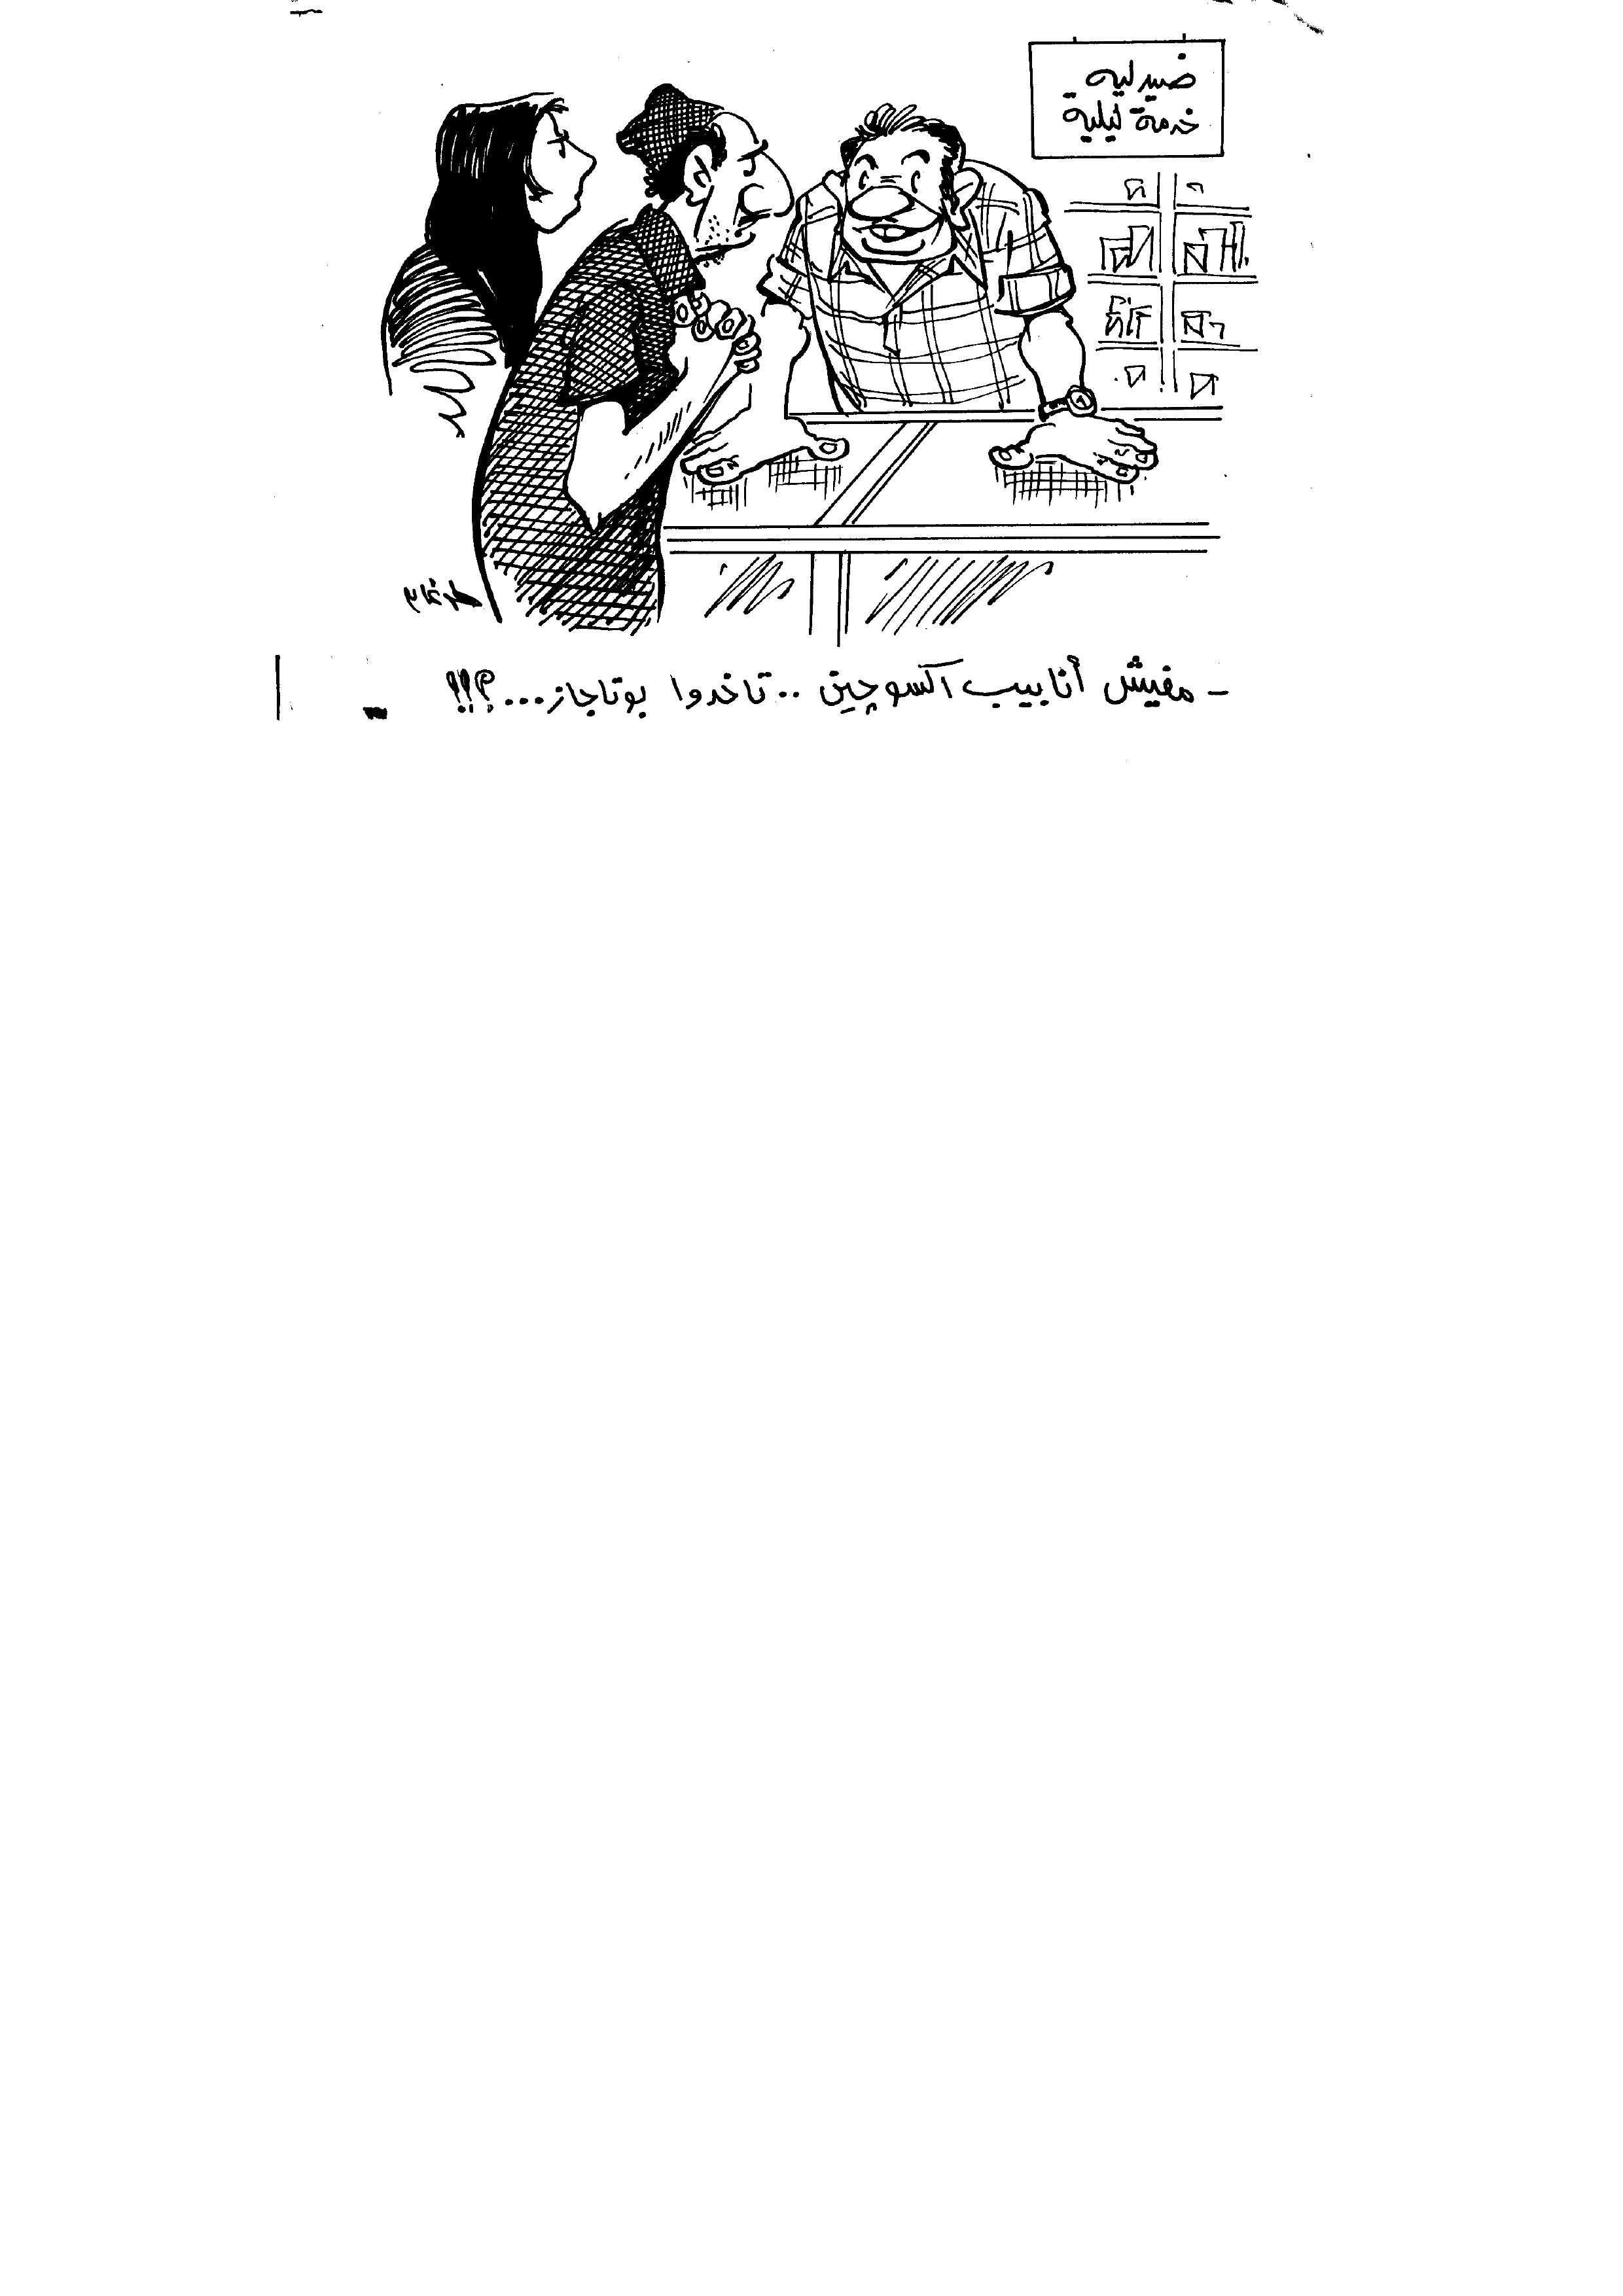 صيدلية
خدمة ليلية
- مفيش أنابيب آكسوچين .. تاخدوا بوتاجاز...؟!!!